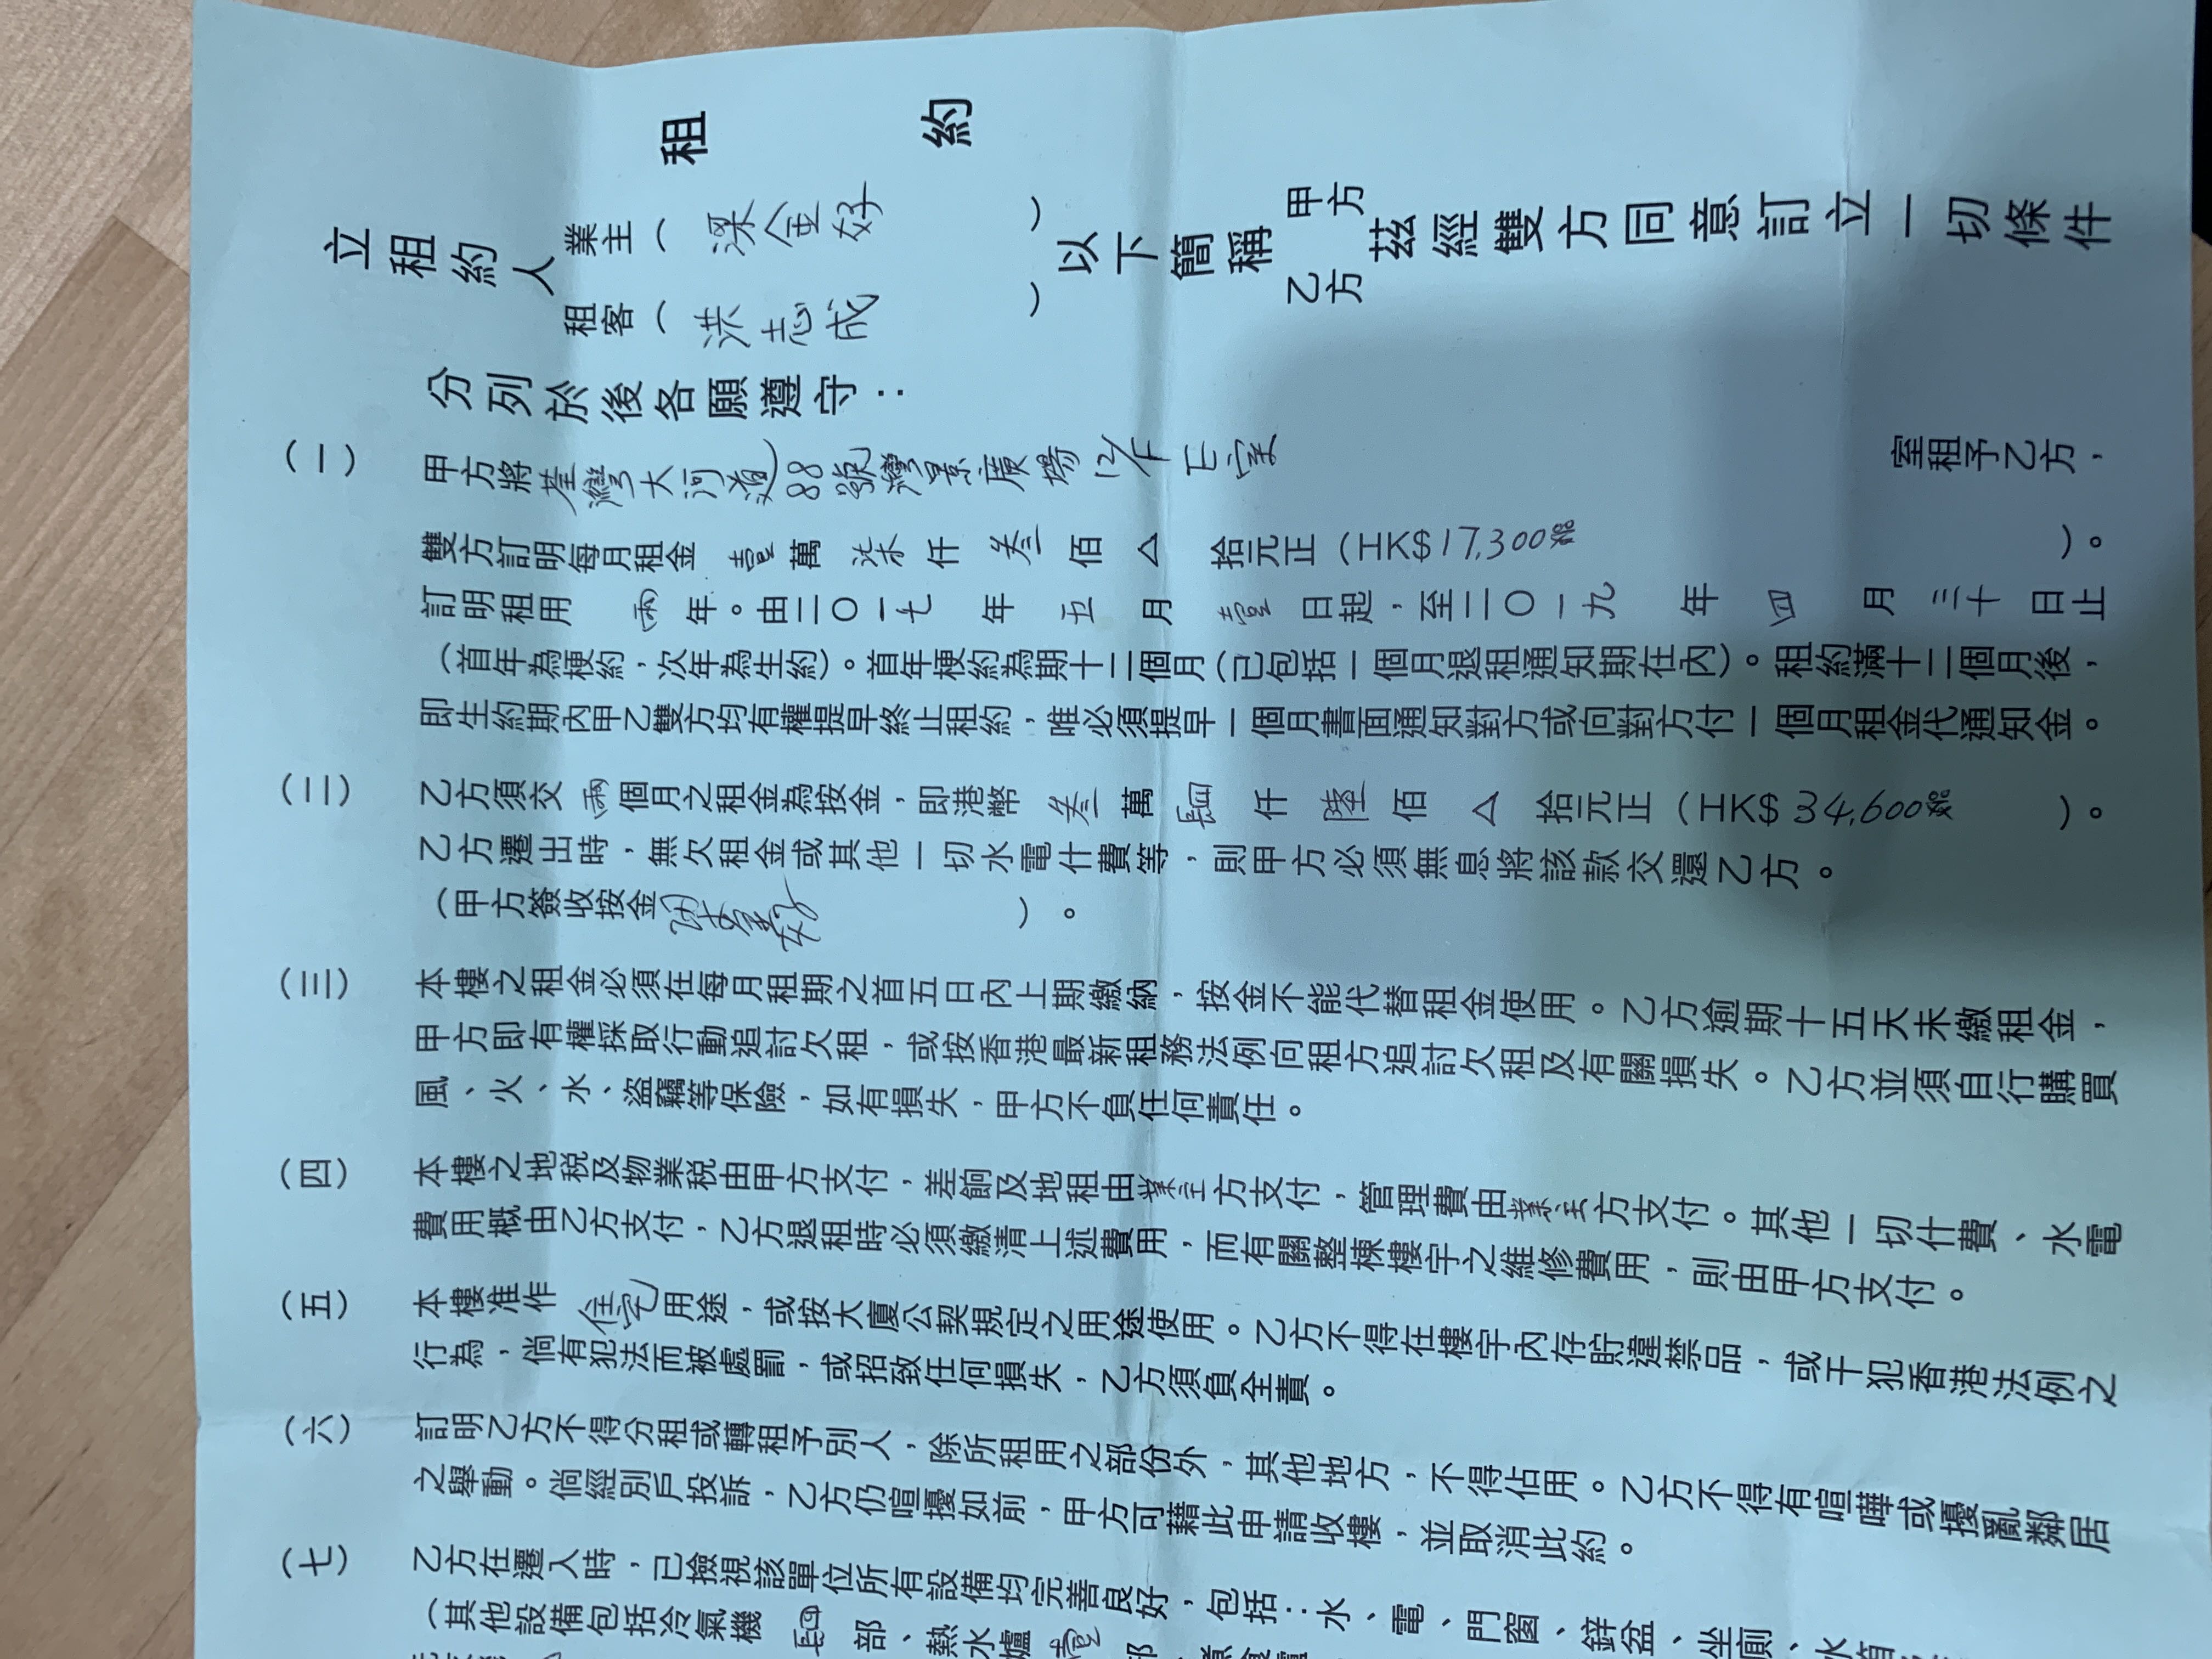 租約
立租約人 業主（梁金好）以下簡稱 甲方 茲經雙方同意訂立一切條件
租客（洪志成） 乙方
分列於後各願遵守：
（一） 甲方將荃灣大河道88號灣景廣場12/F E室 室租予乙方，
雙方訂明每月租金 壹 萬 柒 仟 叁 佰 △ 拾元正（HK$17,300 ）。
訂明租用 兩 年。由二〇一七 年 五 月 壹 日起，至二〇一九 年 四 月 三十 日止
（首年為梗約，次年為生約）。首年梗約為期十二個月（已包括一個月退租通知期在內）。租約滿十二個月後，
即生約期內甲乙雙方均有權提早終止租約，唯必須提早一個月書面通知對方或向對方付一個月租金代通知金。
（二） 乙方須交 兩 個月之租金為按金，即港幣 叁 萬 肆 仟 陸 佰 △ 拾元正（HK$34,600 ）。
乙方遷出時，無欠租金或其他一切水電什費等，則甲方必須無息將該款交還乙方。
（甲方簽收按金 ）。
（三） 本樓之租金必須在每月租期之首五日內上期繳納，按金不能代替租金使用。乙方逾期十五天未繳租金，
甲方即有權採取行動追討欠租，或按香港最新租務法例向租方追討欠租及有關損失。乙方並須自行購買
風、火、水、盜竊等保險，如有損失，甲方不負任何責任。
（四） 本樓之地稅及物業稅由甲方支付，差餉及地租由業主方支付，管理費由業主方支付。其他一切什費、水電
費用概由乙方支付，乙方退租時必須繳清上述費用，而有關整棟樓宇之維修費用，則由甲方支付。
（五） 本樓准作 住宅 用途，或按大廈公契規定之用途使用。乙方不得在樓宇內存貯違禁品，或干犯香港法例之
行為，倘有犯法而被處罰，或招致任何損失，乙方須負全責。
（六） 訂明乙方不得分租或轉租予別人，除所租用之部份外，其他地方，不得佔用。乙方不得有喧嘩或擾亂鄰居
之舉動。倘經別戶投訴，乙方仍喧擾如前，甲方可藉此申請收樓，並取消此約。
（七） 乙方在遷入時，已撿視該單位所有設備均完善良好，包括：水、電、門窗、鋅盆、坐廁、水箱
（其他設備包括冷氣機 四 部、熱水爐 壹